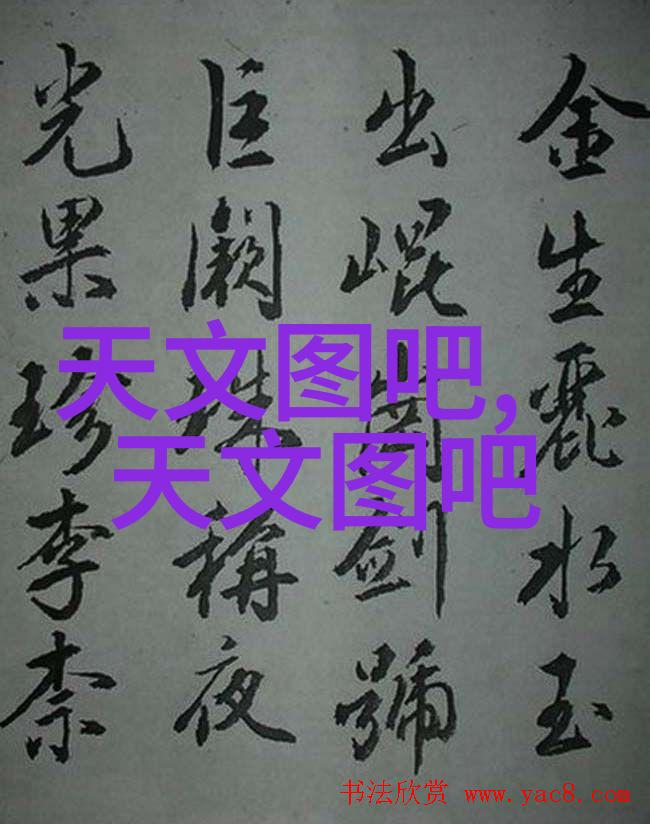 金生麗水玉
出崐崗劍號
巨闕珠稱夜
光果珍李柰
天文图吧,
天文图吧
书法欣赏 www.yac8.com